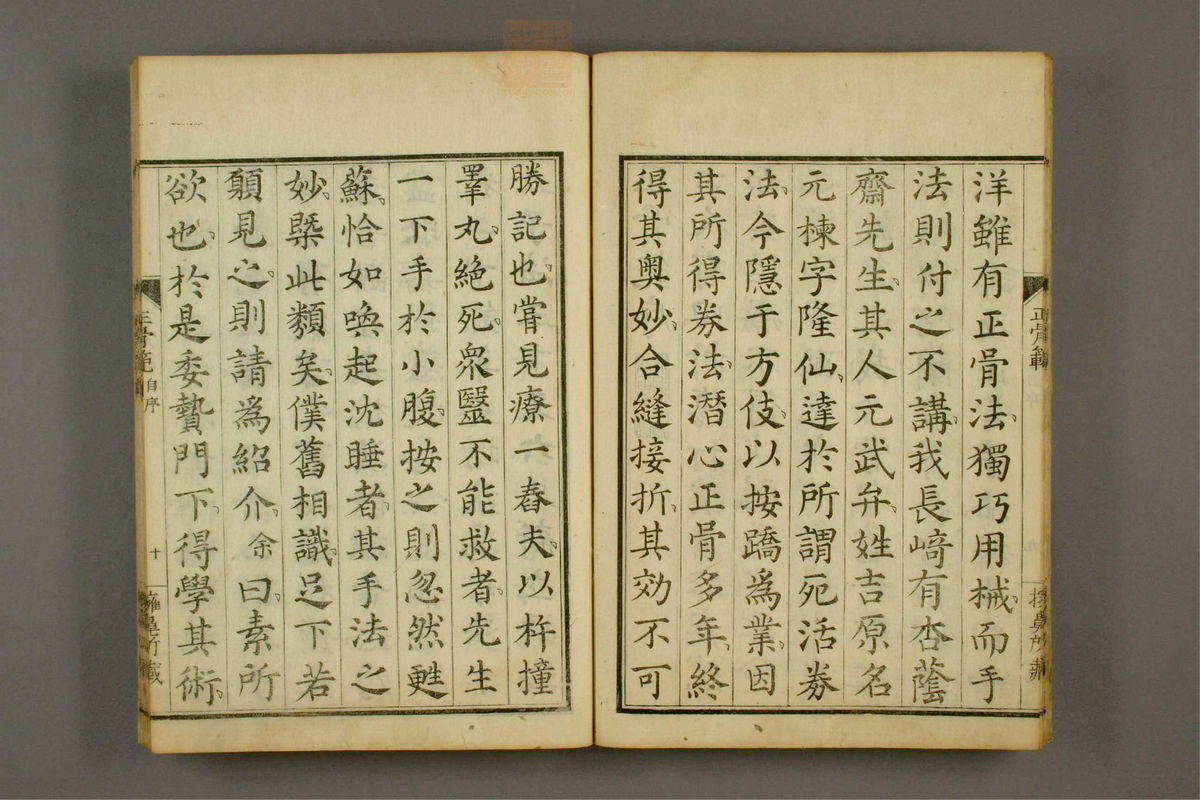 洋雖有正骨法獨巧用械而手
法則付之不講我長﨑有杏蔭
齋先生其人元武弁姓吉原名
元棟字隆仙達於所謂死活券
法今隱于方伎以按蹻為業因
其所得券法潛心正骨多年終
得其奥妙合縫接折其効不可
勝記也嘗見療一舂夫以杵撞
睾丸絶死衆毉不能救者先生
一下手於小腹按之則忽然甦
蘇恰如喚起沈睡者其手法之
妙槩此類矣僕舊相識足下若
願見之則請為紹介余曰素所
欲也於是委贄門下得學其術
正骨範
自序
十